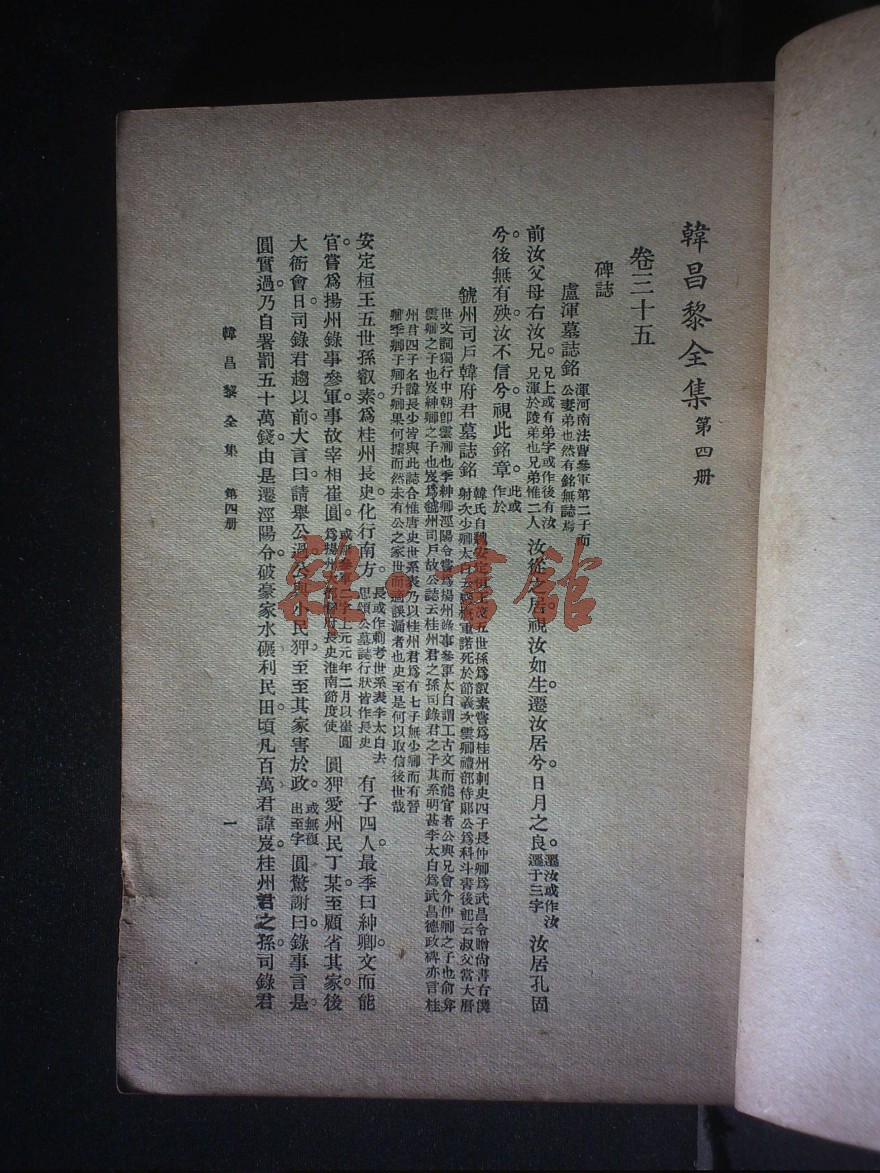 韓昌黎全集 第四册
卷三十五
碑誌
盧渾墓誌銘 渾河南法曹參軍第二子而
公妻弟也然有銘無誌焉
前汝父母右汝兄。兄上或有弟字或作後有汝
兄渾於陵弟也兄弟惟二人 汝從之居視汝如生。遷汝居兮。日月之良。遷汝或作汝
遷于三字 汝居孔固
兮。後無有殃。汝不信兮。視此銘章。此或
作於
虢州司戶韓府君墓誌銘 韓氏自魏安定桓王茂五世孫爲叡素嘗爲桂州刺史四子長仲卿爲武昌令贈尚書右僕
射次少卿太白云感慨重諾死於節義次雲卿禮部侍郎公爲科斗書後記云叔父當大曆
世文詞獨行中朝卽雲卿也季紳卿涇陽令嘗爲揚州錄事參軍太白謂工古文而能官者公與兄會介仲卿之子也俞弇
雲卿之子也岌紳卿之子也岌爲虢州司戶故公誌云桂州君之孫司錄君之子其系明甚李太白爲武昌德政碑亦言桂
州君四子名諱長少皆與此誌合惟唐史世系表乃以桂州君爲有七子無少卿而有晉
卿季卿子卿升卿果何據而然未有公之家世而適誤漏者也史至是何以取信後世哉
安定桓王五世孫叡素爲桂州長史。化行南方。長或作刺考世系表李太白去
思頌公墓誌行狀皆作長史 有子四人。最季曰紳卿。文而能
官。嘗爲揚州錄事參軍。事故宰相崔圓。或無參軍二字上元元年二月以崔圓
爲揚州大都督府長史淮南節度使 圓狎愛州民丁某。至顧省其家。後
大衙會日。司錄君趨以前。大言曰。請舉公過。公與小民狎。至至其家。害於政。或無復
出至字 圓驚謝曰。錄事言是。
圓實過。乃自署罰五十萬錢。由是遷涇陽令。破豪家水碾利民田。頃凡百萬。君諱岌。桂州君之孫。司錄君
韓昌黎全集 第四册 一